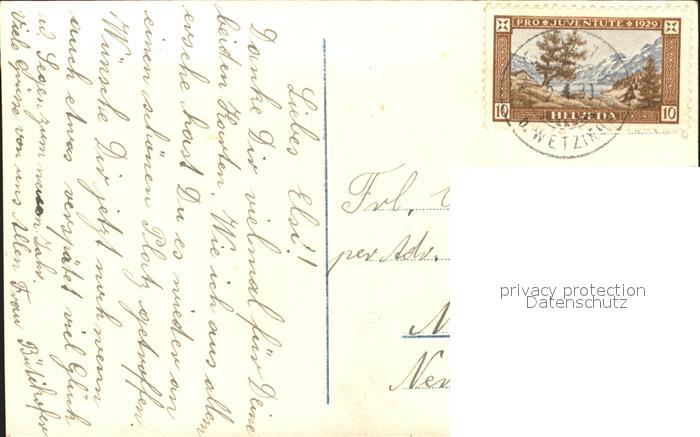 Liebes Elsi!!
Danke Dir vielmal für Deine
beiden Karten. Wie ich aus allem
ersehe hast Du es wieder an
einen schönen Platz getroffen.
Wünsche Dir jetzt noch wenn
auch etwas verspätet viel Glück
u. Segen zum neuen Jahr.
Viele Grüsse von uns Allen Frau Bütikofer
PRO JUVENTUTE 1929
10 HELVETIA 10
b. WETZIKON
Frl.
per Adr.
privacy protection
Datenschutz